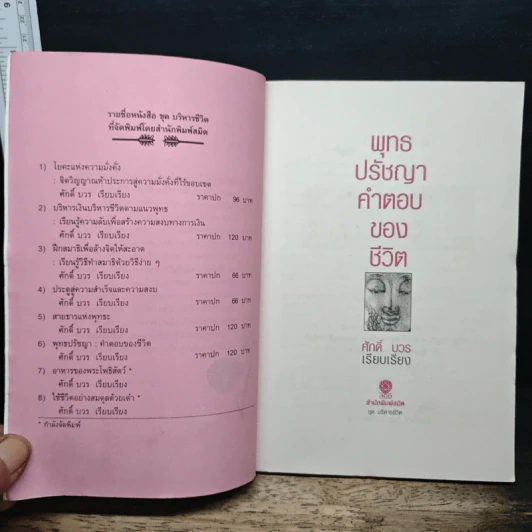 รายชื่อหนังสือ ชุด บริหารชีวิต
ที่จัดพิมพ์โดยสำนักพิมพ์สมิต
1) โยคะแห่งความมั่งคั่ง
: จิตวิญญาณห้าประการสู่ความมั่งคั่งที่ไร้ขอบเขต
ศักดิ์ บวร เรียบเรียง ราคาปก 96 บาท
2) บริหารเงินบริหารชีวิตตามแนวพุทธ
: เรียนรู้ความลับเพื่อสร้างความสงบทางการเงิน
ศักดิ์ บวร เรียบเรียง ราคาปก 120 บาท
3) ฝึกสมาธิเพื่อล้างจิตให้สะอาด
: เรียนรู้วิธีทำสมาธิด้วยวิธีง่าย ๆ
ศักดิ์ บวร เรียบเรียง ราคาปก 66 บาท
4) ประตูสู่ความสำเร็จและความสงบ
ศักดิ์ บวร เรียบเรียง ราคาปก 66 บาท
5) สายธารแห่งพุทธะ
ศักดิ์ บวร เรียบเรียง ราคาปก 120 บาท
6) พุทธปรัชญา : คำตอบของชีวิต
ศักดิ์ บวร เรียบเรียง ราคาปก 120 บาท
7) อาหารของพระโพธิสัตว์ *
ศักดิ์ บวร เรียบเรียง
8) ใช้ชีวิตอย่างสมดุลด้วยเต๋า *
ศักดิ์ บวร เรียบเรียง
* กำลังจัดพิมพ์
พุทธ
ปรัชญา
คำตอบ
ของ
ชีวิต
ศักดิ์ บวร
เรียบเรียง
สำนักพิมพ์สมิต
ชุด บริหารชีวิต